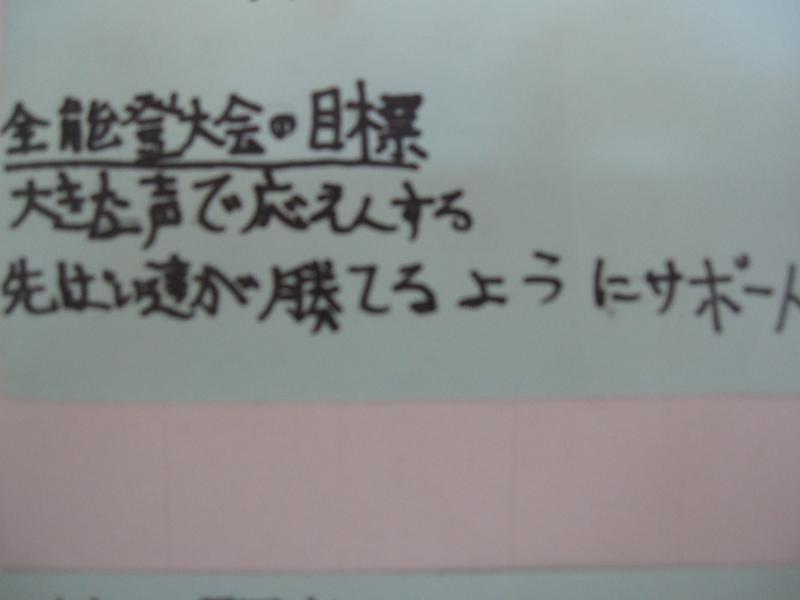 全能登大会の目標
大きな声で応えんする
先ぱい達が勝てるようにサポート